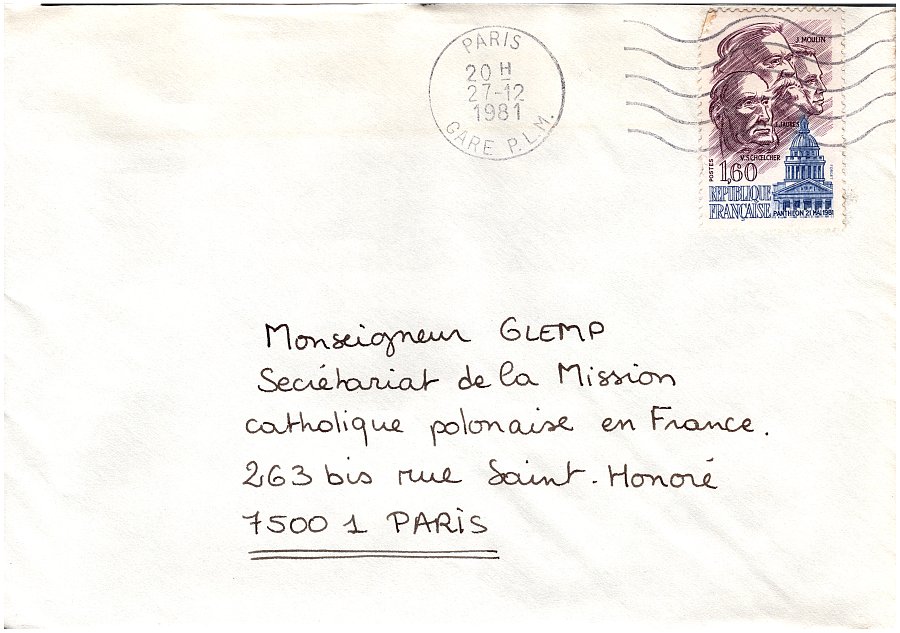 PARIS
20 H
27-12
1981
GARE P.L.M.
J. MOULIN
J. JAURES
V. SCHŒLCHER
POSTES
1,60
REPUBLIQUE
FRANÇAISE
PANTHEON 21 MAI 1981
Monseigneur GLEMP
Secrétariat de la Mission
catholique polonaise en France.
263 bis rue Saint-Honoré
75001 PARIS